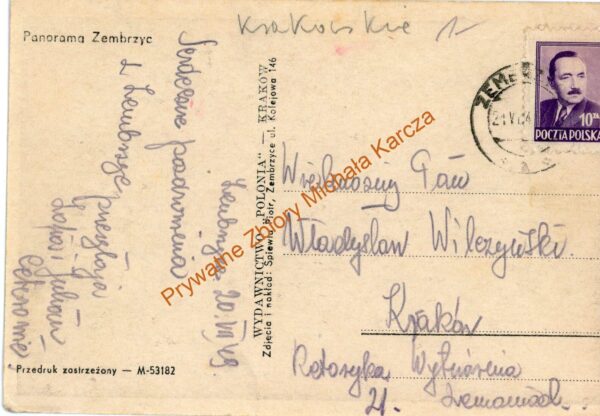 Krakowskie
Panorama Zembrzyc
Serdeczne pozdrowienia
z Zembrzyc przesyłają
Zofia i Julian
Zembrzyce 20.VII.49.
WYDAWNICTWO „POLONIA” — KRAKÓW
Zdjęcia i nakład: Śpiewla Piotr, Zembrzyce ul. Kolejowa 146
ZEMB
21.VI
10 ZŁ
POCZTA POLSKA
Wielmożny Pan
Władysław Wilczyński.
Kraków
21.
Przedruk zastrzeżony — M-53182
Prywatne Zbiory Michała Karcza